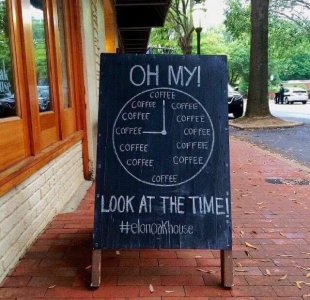 OH MY!
COFFEE
COFFEE COFFEE
COFFEE COFFEE
COFFEE COFFEE
COFFEE COFFEE
COFFEE COFFEE
COFFEE
LOOK AT THE TIME!
#elonoakhouse